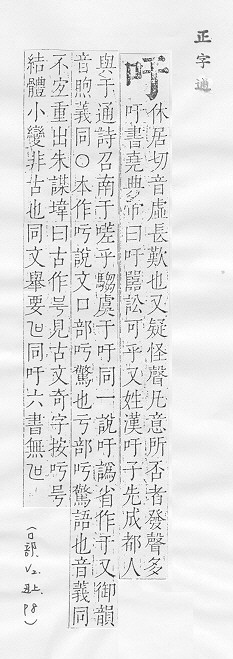 正字通
吁
休居切音虛長歎也又疑怪聲凡意所否者發聲多
吁書堯典帝曰吁嚚訟可乎又姓漢吁子先成都人
與于通詩召南于嗟乎騶虞于吁同一說吁譌省作于又御韻
音煦義同○本作吁說文口部吁驚也亏部吁驚語也音義同
不宐重出朱謀㙔曰古作号見古文奇字按吁号
結體小變非古也同文舉要同吁六書無
(口部. V2. 丑上. P8)